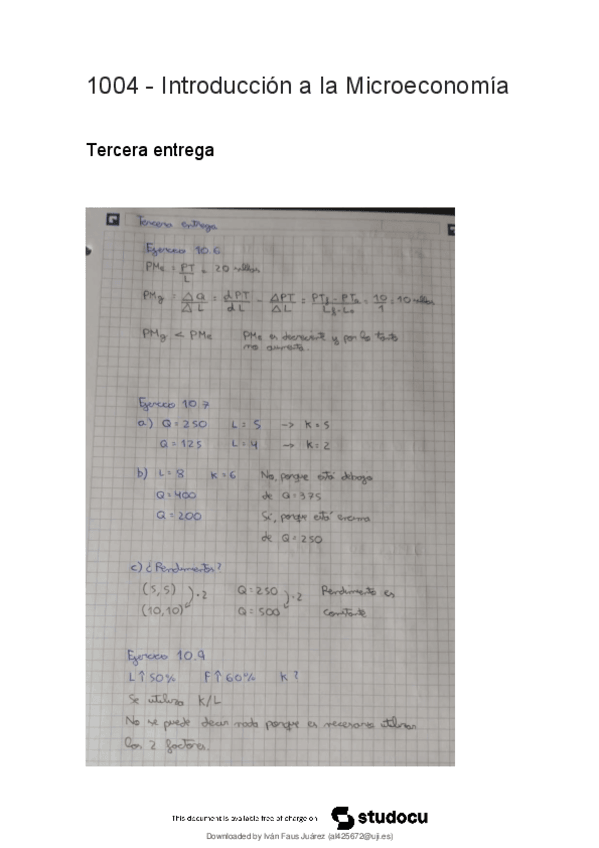 1004 - Introducción a la Microeconomía
Tercera entrega
Tercera entrega
Ejercicio 10.6
PMe = PT/L = 20 sillas
PMg = ΔQ/ΔL = dPT/dL = ΔPT/ΔL = PTf - PTo/Lf - Lo = 10/1 = 10 sillas
PMg < PMe PMe es decreciente y por lo tanto
no aumenta.
Ejercicio 10.7
a) Q = 250 L = 5 -> K = 5
Q = 125 L = 4 -> K = 2
b) L = 8 K = 6 No, porque está debajo
Q = 400 de Q = 375
Q = 200 Sí, porque está encima
de Q = 250
c) ¿Rendimientos?
(5,5) ·2 Q = 250 ·2 Rendimiento es
(10,10) Q = 500 constante
Ejercicio 10.9
L ↑ 50% F ↑ 60% K ?
Se utiliza K/L
No se puede decir nada porque es necesario utilizar
los 2 factores.
This document is available free of charge on studocu
Downloaded by Iván Faus Juárez (al425672@uji.es)